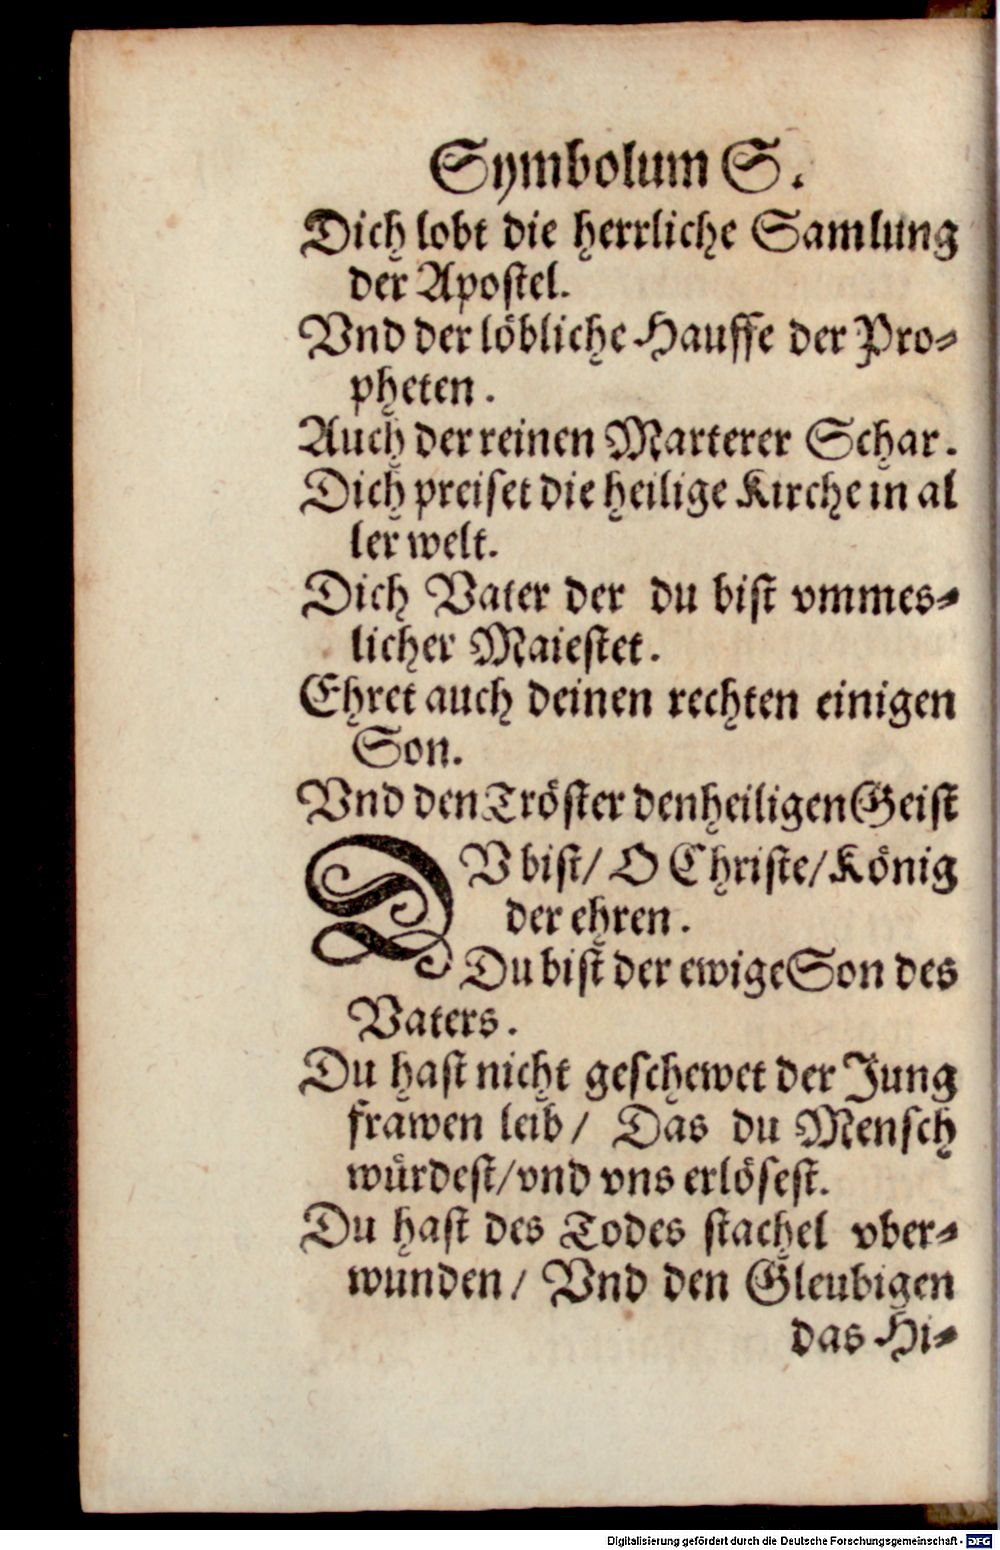 Symbolum S.
Dich lobt die herrliche Samlung
der Apostel.
Vnd der löbliche Hauffe der Pro-
pheten.
Auch der reinen Marterer Schar.
Dich preiset die heilige Kirche in al
ler welt.
Dich Vater der du bist vmmes-
licher Maiestet.
Ehret auch deinen rechten einigen
Son.
Vnd den Tröster den heiligen Geist
DV bist/ O Christe/ König
der ehren.
Du bist der ewige Son des
Vaters.
Du hast nicht geschewet der Jung
frawen leib/ Das du Mensch
würdest/ vnd vns erlösest.
Du hast des Todes stachel vber-
wunden/ Vnd den Gleubigen
das Hi-
Digitalisierung gefördert durch die Deutsche Forschungsgemeinschaft - DFG